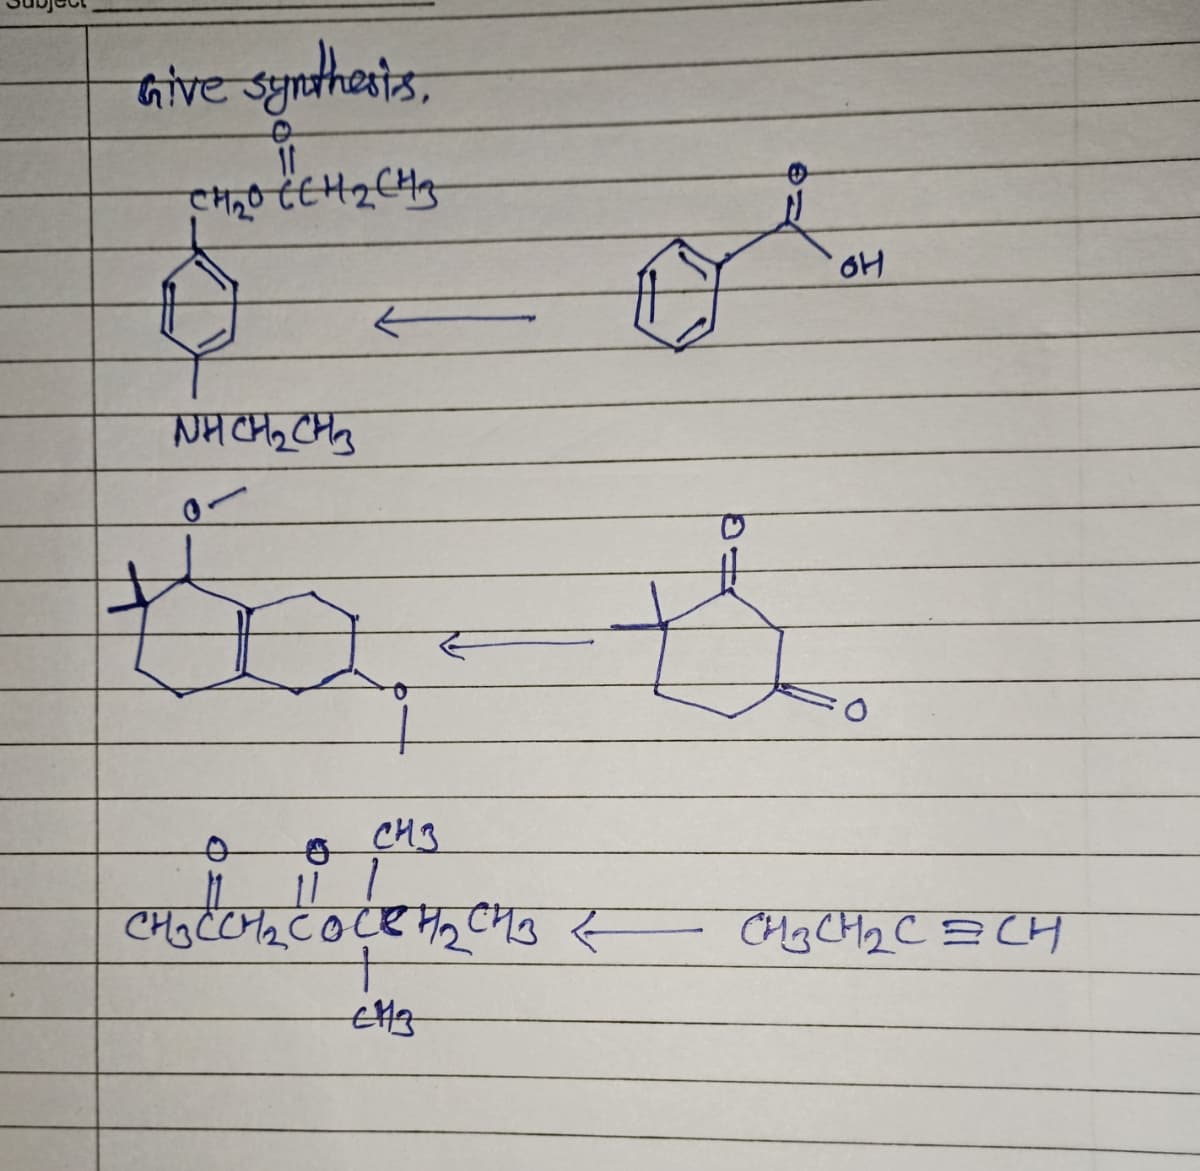 Subject
Give synthesis.
O
CH₂O CCH₂CH₃
O
OH
NHCH₂CH₃
O
O
O
O
CH₃
O O
CH₃CCH₂COCCH₂CH₃ ← CH₃CH₂C≡CH
CH₃